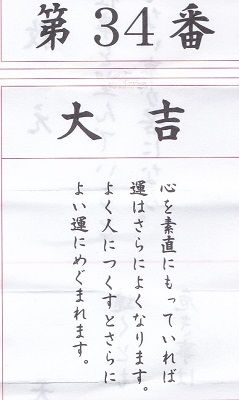 第34番
大吉
心を素直にもっていれば
運はさらによくなります。
よく人につくすとさらに
よい運にめぐまれます。